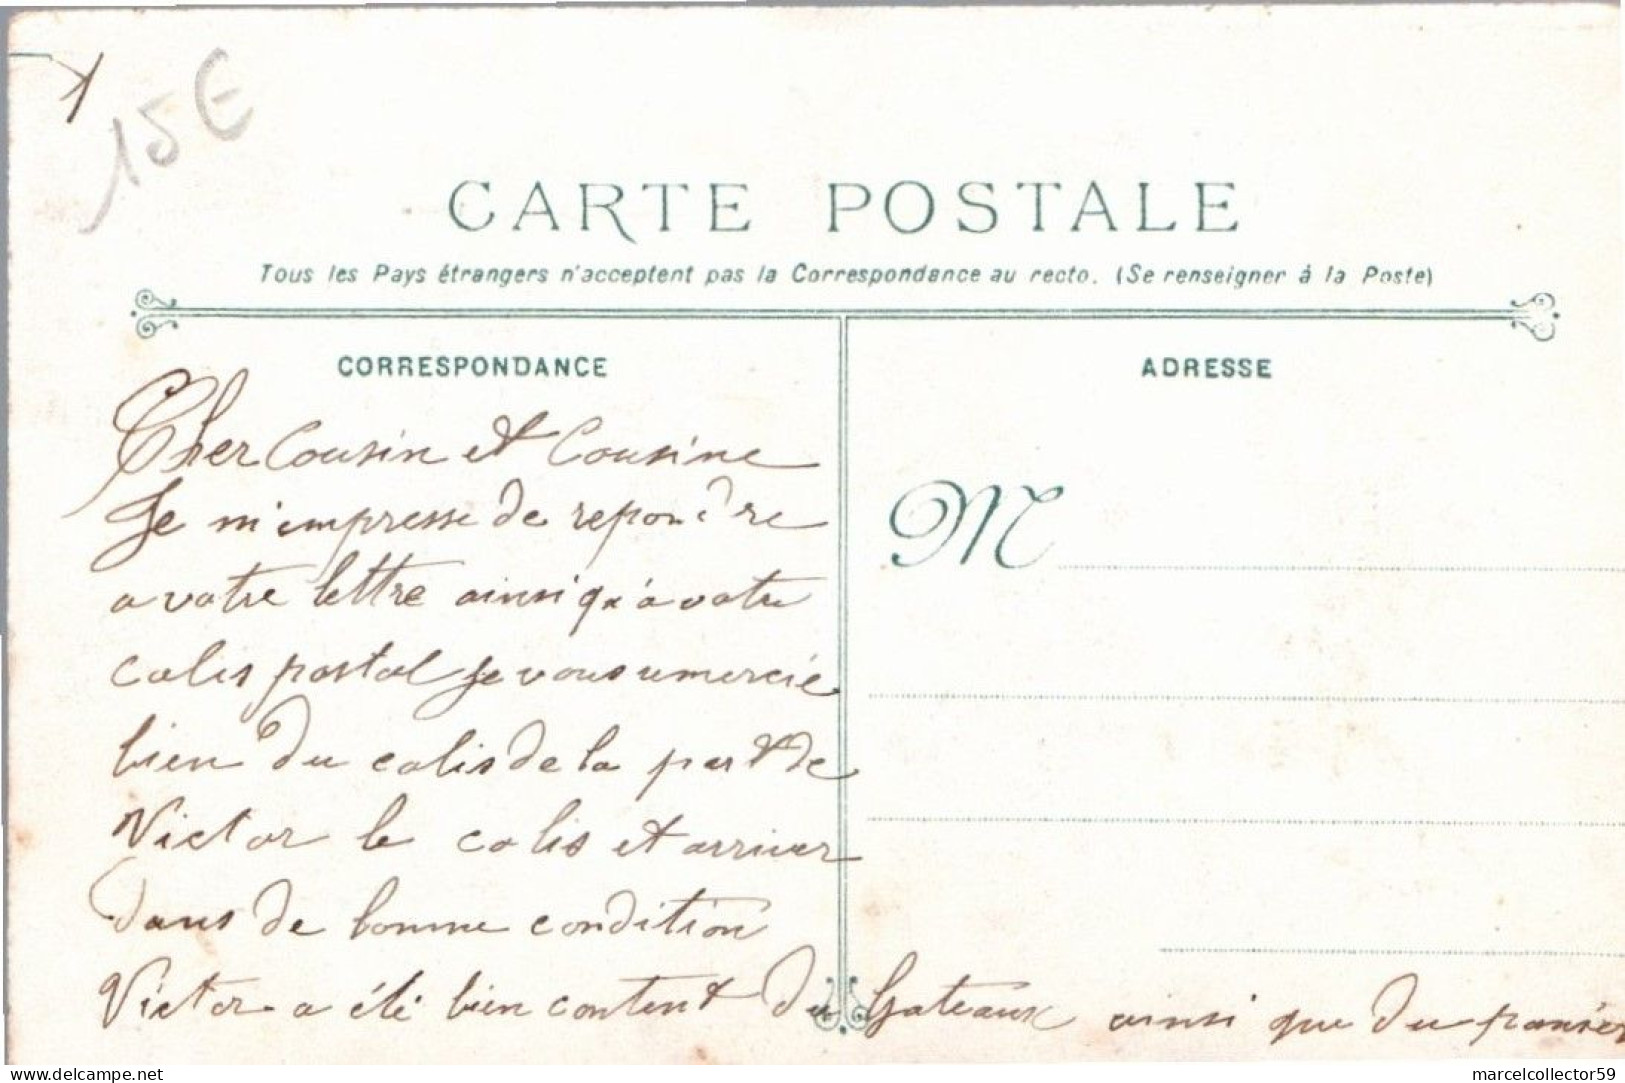 1
15€
CARTE POSTALE
Tous les Pays étrangers n'acceptent pas la Correspondance au recto. (Se renseigner à la Poste)
CORRESPONDANCE
ADRESSE
Cher Cousin et Cousine
Je m'empresse de repondre
a votre lettre ainsi qu'à votre
colis postal Je vous remercie
bien du colis de la part de
Victor le colis et arriver
dans de bonne condition
Victor a été bien content du Gateaux ainsi que du panier
M
delcampe.net
marcelcollector59